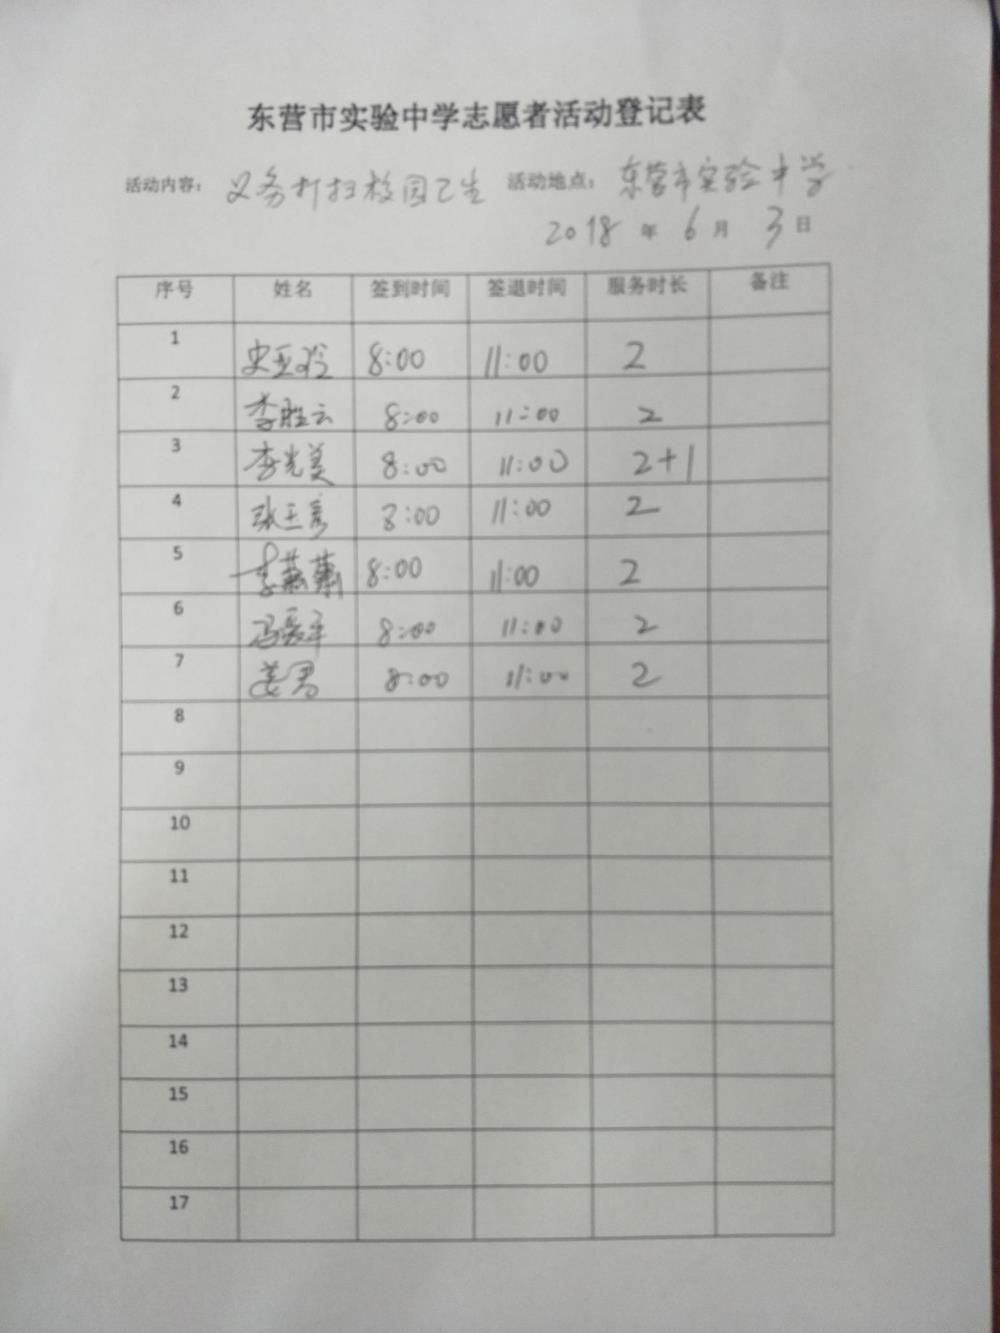 东营市实验中学志愿者活动登记表
活动内容： 义务打扫校园卫生 活动地点： 东营市实验中学
2018 年 6 月 3 日
序号 姓名 签到时间 签退时间 服务时长 备注
1 史亚玲 8:00 11:00 2
2 李胜云 8:00 11:00 2
3 李光美 8:00 11:00 2+1
4 张玉彦 8:00 11:00 2
5 李 8:00 11:00 2
6 冯 8:00 11:00 2
7 姜君 8:00 11:00 2
8
9
10
11
12
13
14
15
16
17